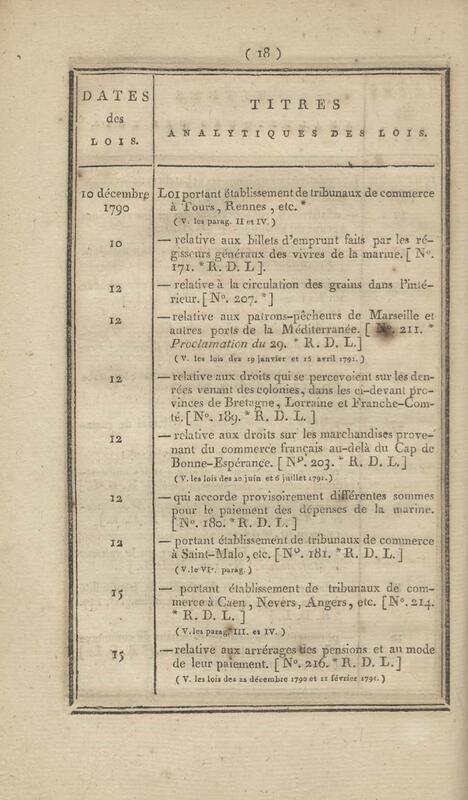 ( 18 )
DATES
des
LOIS.
TITRES
ANALYTIQUES DES LOIS.
10 décembre
1790
LOI portant établissement de tribunaux de commerce
à Tours, Rennes, etc. *
( V. les parag. II et IV. )
10
— relative aux billets d'emprunt faits par les ré-
gisseurs généraux des vivres de la marine. [ N°.
171. * R. D. L ].
12
— relative à la circulation des grains dans l'inté-
rieur. [ N°. 207. * ]
12
— relative aux patrons-pêcheurs de Marseille et
autres ports de la Méditerranée. [ N°. 211. *
Proclamation du 29. * R. D. L. ]
( V. les lois des 19 janvier et 15 avril 1791. )
12
— relative aux droits qui se percevoient sur les den-
rées venant des colonies, dans les ci-devant pro-
vinces de Bretagne, Lorraine et Franche-Com-
té. [ N°. 189. * R. D. L. ]
12
— relative aux droits sur les marchandises prove-
nant du commerce français au-delà du Cap de
Bonne-Espérance. [ N°. 203. * R. D. L. ]
( V. les lois des 20 juin et 6 juillet 1791. )
12
— qui accorde provisoirement différentes sommes
pour le paiement des dépenses de la marine.
[ N°. 180. * R. D. L. ]
12
— portant établissement de tribunaux de commerce
à Saint-Malo, etc. [ N°. 181. * R. D. L. ]
( V. le VIe. parag. )
15
— portant établissement de tribunaux de com-
merce à Caen, Nevers, Angers, etc. [ N°. 214.
* R. D. L. ]
( V. les parag. III. et IV. )
15
— relative aux arrérages des pensions et au mode
de leur paiement. [ N°. 216. * R. D. L. ]
( V. les lois des 22 décembre 1790 et 11 février 1791. )